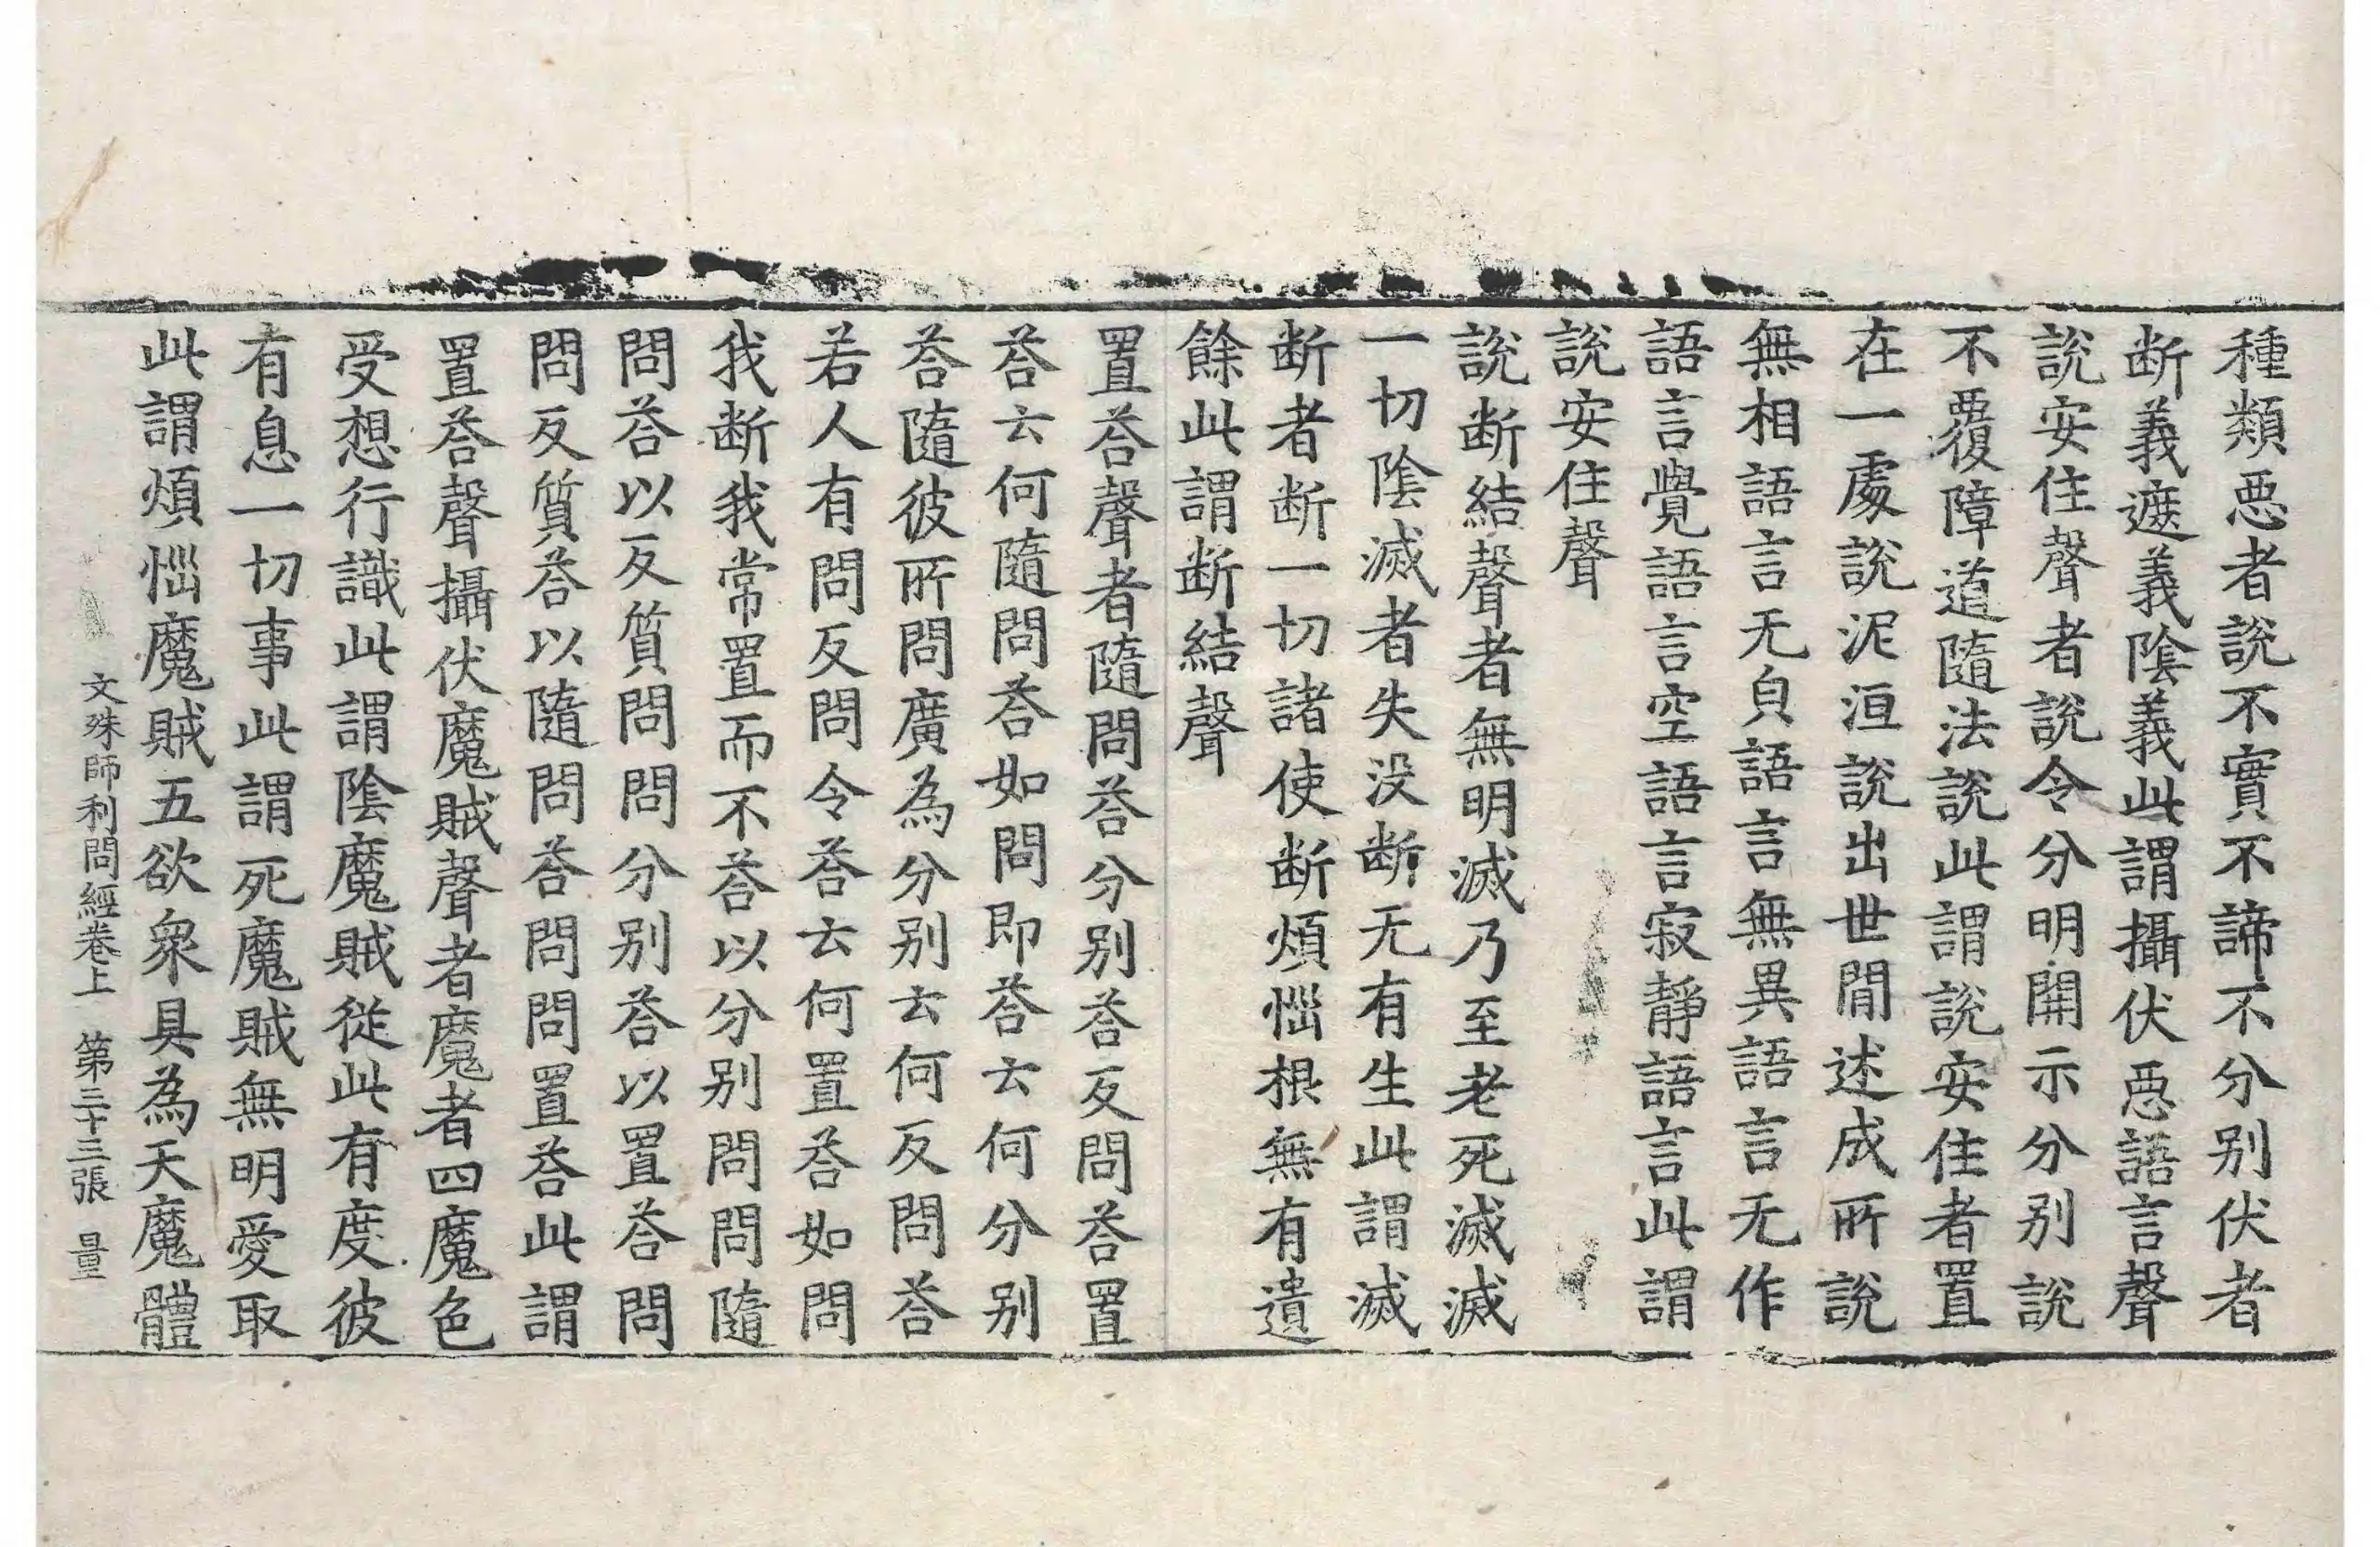 種類惡者說不實不諦不分別伏者
断義遮義陰義此謂攝伏惡語言聲
說安住聲者說令分明開示分别說
不覆障道隨法說此謂說安住者置
在一處說泥洹說出世間述成所說
無相語言无負語言無異語言无作
語言覺語言空語言寂靜語言此謂
說安住聲
說断結聲者無明滅乃至老死滅滅
一切陰滅者失没断无有生此謂滅
断者断一切諸使断煩惱根無有遺
餘此謂断結聲
置荅聲者隨問荅分别荅反問荅置
荅云何隨問荅如問即荅云何分别
荅隨彼所問廣為分别云何反問荅
若人有問反問令荅云何置荅如問
我断我常置而不荅以分别問問隨
問荅以反質問問分别荅以置荅問
問反質荅以隨問荅問問置荅此謂
置荅聲攝伏魔賊聲者魔者四魔色
受想行識此謂陰魔賊從此有度彼
有息一切事此謂死魔賊無明愛取
此謂煩惱魔賊五欲衆具為天魔體
文殊師利問經卷上 第三十三張 量